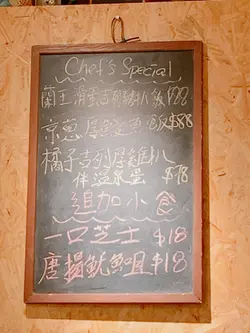 Chef's Special
蘭王滑蛋吉列豬扒飯 $88
京葱厚 飯 $88
橘子吉列厚豬扒
伴温泉蛋 $78
追加小食
一口芝士 $18
唐揚魷魚咀 $18